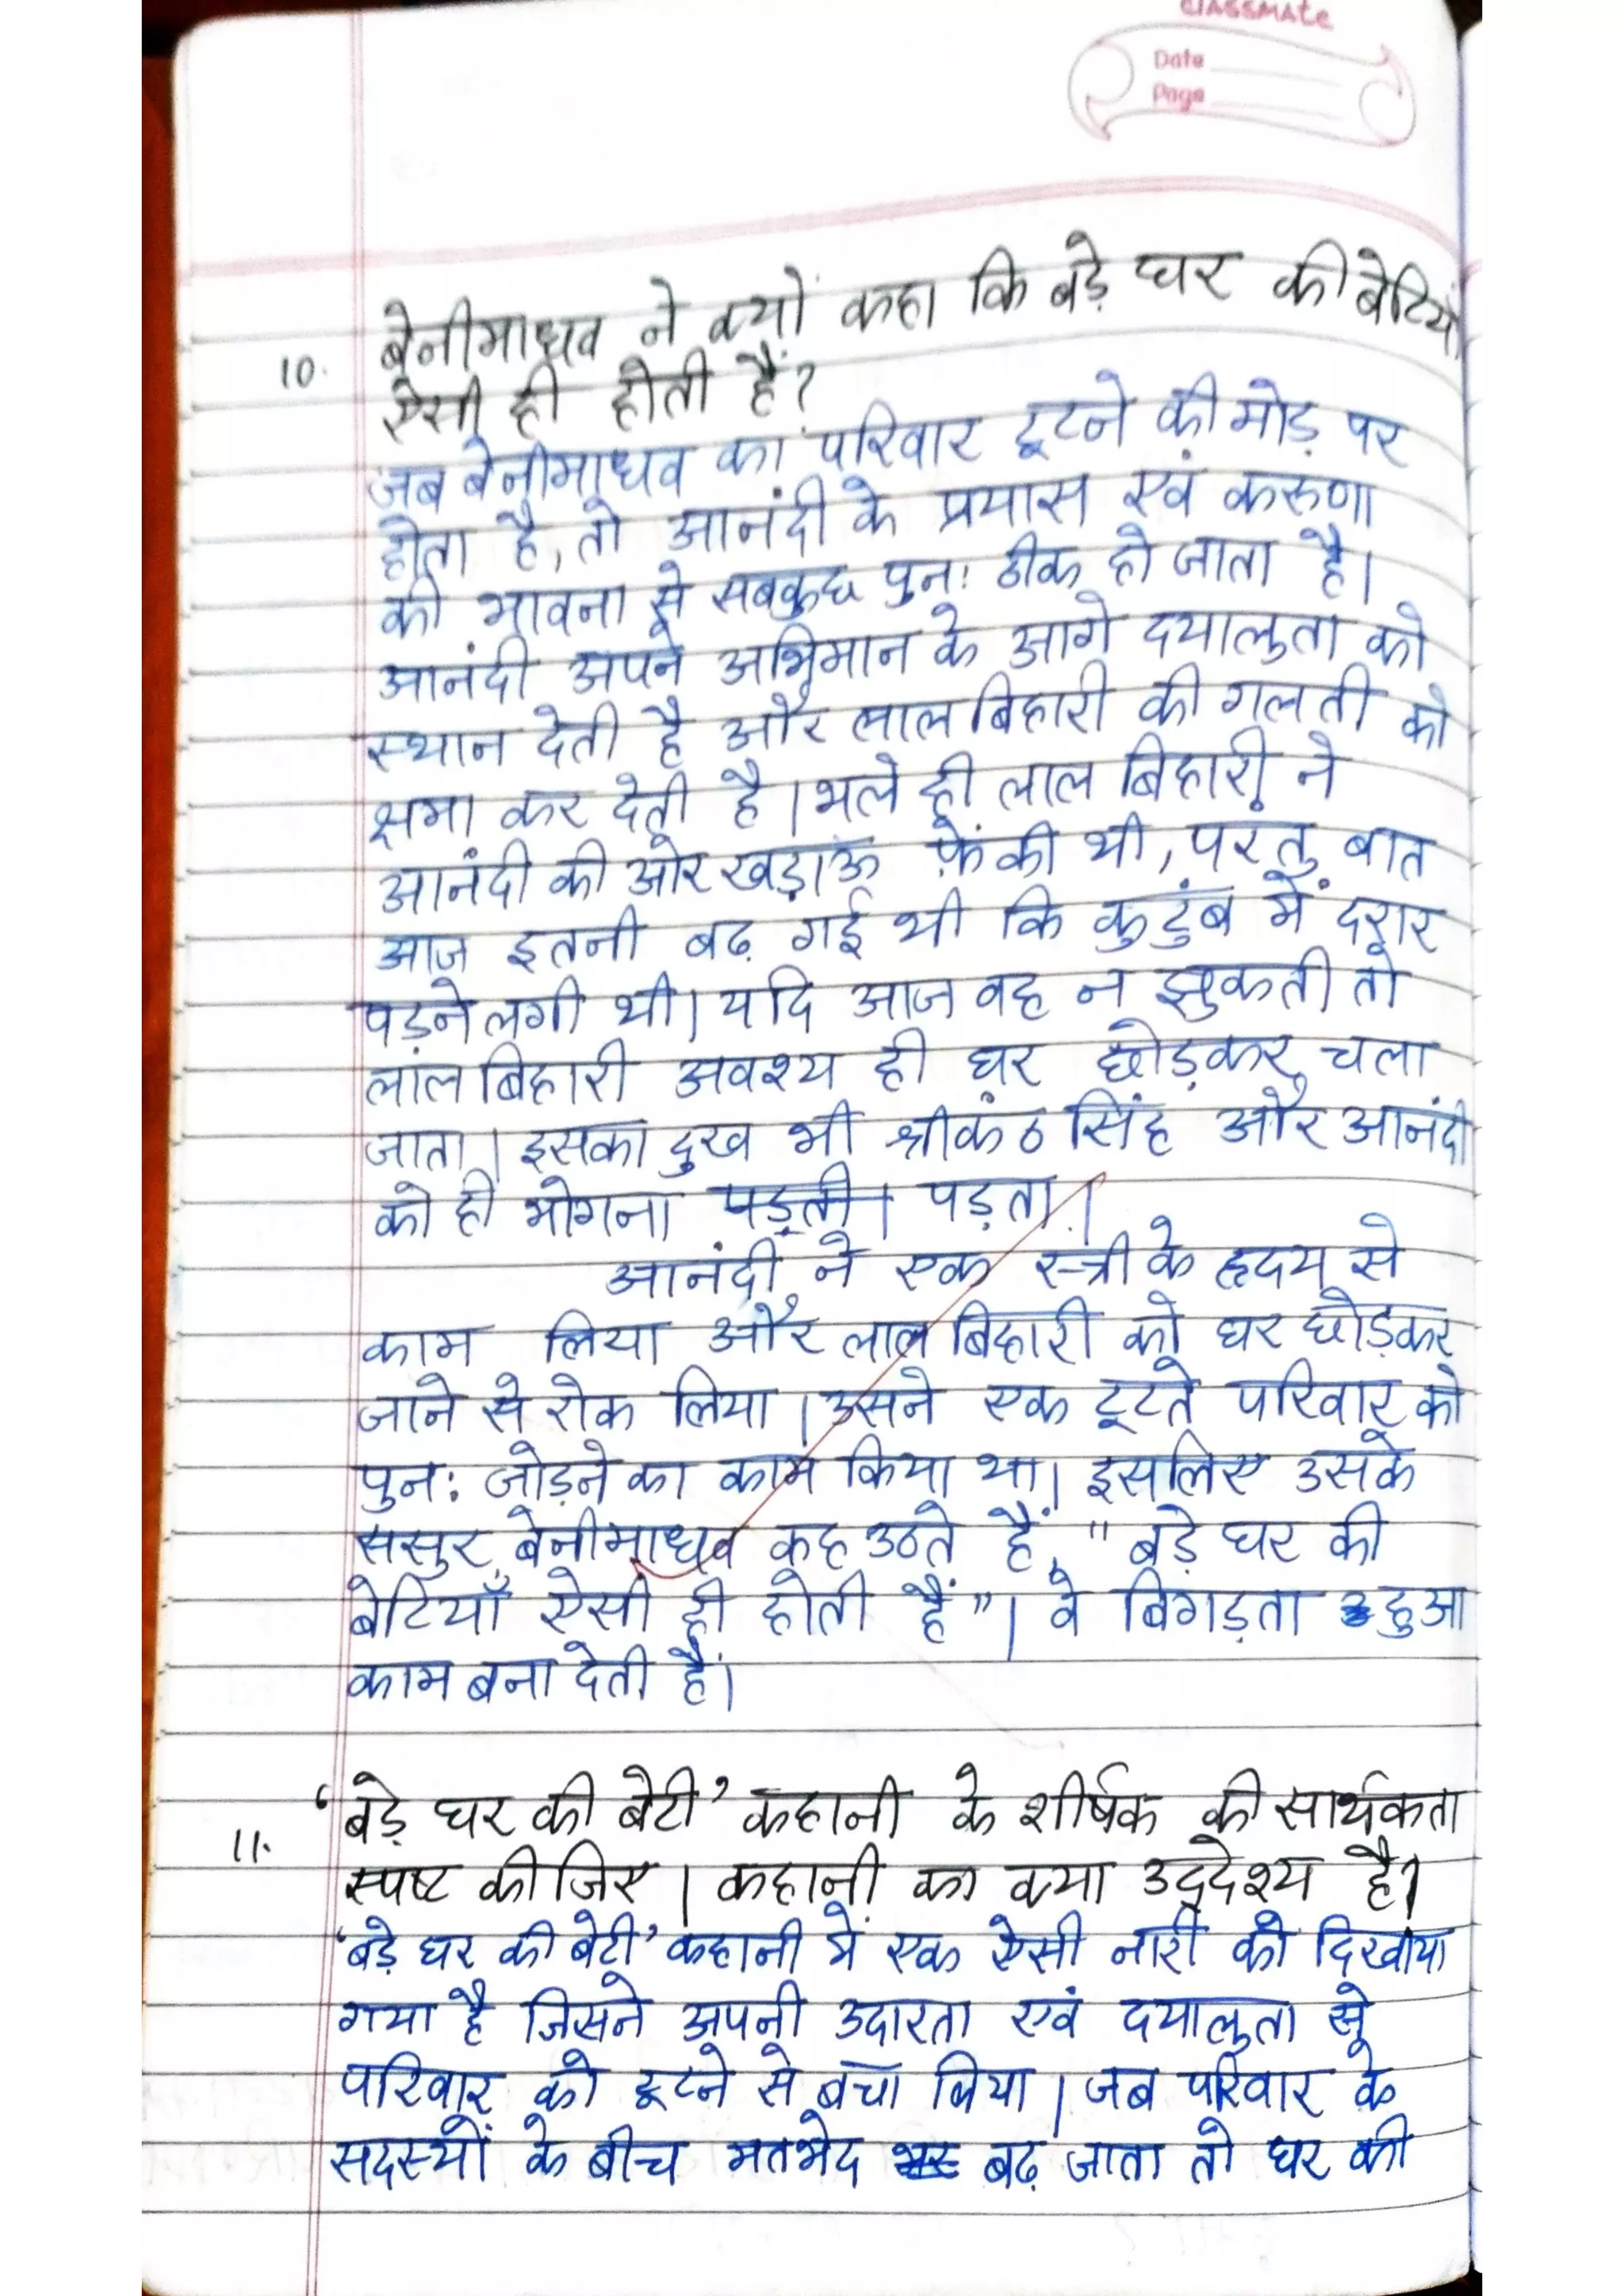 classmate
Date
Page
10. बेनीमाधव ने क्यों कहा कि बड़े घर की बेटियाँ
ऐसी ही होती हैं?
जब बेनीमाधव का परिवार टूटने की मोड़ पर
होता है, तो आनंदी के प्रयास एवं करुणा
की भावना से सबकुछ पुनः ठीक हो जाता है।
आनंदी अपने अभिमान के आगे दयालुता को
स्थान देती है और लाल बिहारी की गलती को
क्षमा कर देती है। भले ही लाल बिहारी ने
आनंदी की ओर खड़ाऊ फ़ेंकी थी, परंतु बात
आज इतनी बढ़ गई थी कि कुटुंब में दरार
पड़ने लगी थी। यदि आज वह न झुकती तो
लाल बिहारी अवश्य ही घर छोड़कर चला
जाता। इसका दुख भी श्रीकंठ सिंह और आनंदी
को ही भोगना पड़ती। पड़ता।
आनंदी ने एक स्त्री के हृदय से
काम लिया और लाल बिहारी को घर छोड़कर
जाने से रोक लिया। उसने एक टूटते परिवार को
पुनः जोड़ने का काम किया था। इसलिए उसके
ससुर बेनीमाधव कह उठते हैं, "बड़े घर की
बेटियाँ ऐसी ही होती हैं"। वे बिगड़ता हुआ
काम बना देती हैं।
11. 'बड़े घर की बेटी' कहानी के शीर्षक की सार्थकता
स्पष्ट कीजिए। कहानी का क्या उद्देश्य है?
'बड़े घर की बेटी' कहानी में एक ऐसी नारी को दिखाया
गया है जिसने अपनी उदारता एवं दयालुता से
परिवार को टूटने से बचा लिया। जब परिवार के
सदस्यों के बीच मतभेद बढ़ जाता तो घर की